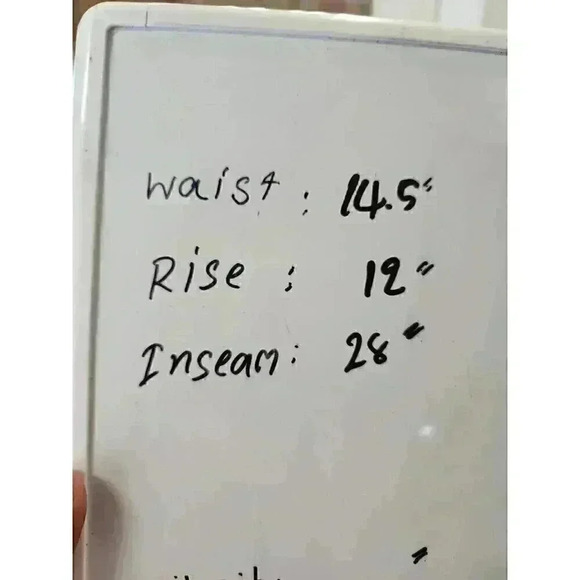 Waist : 14.5"
Rise : 12"
Inseam : 28"